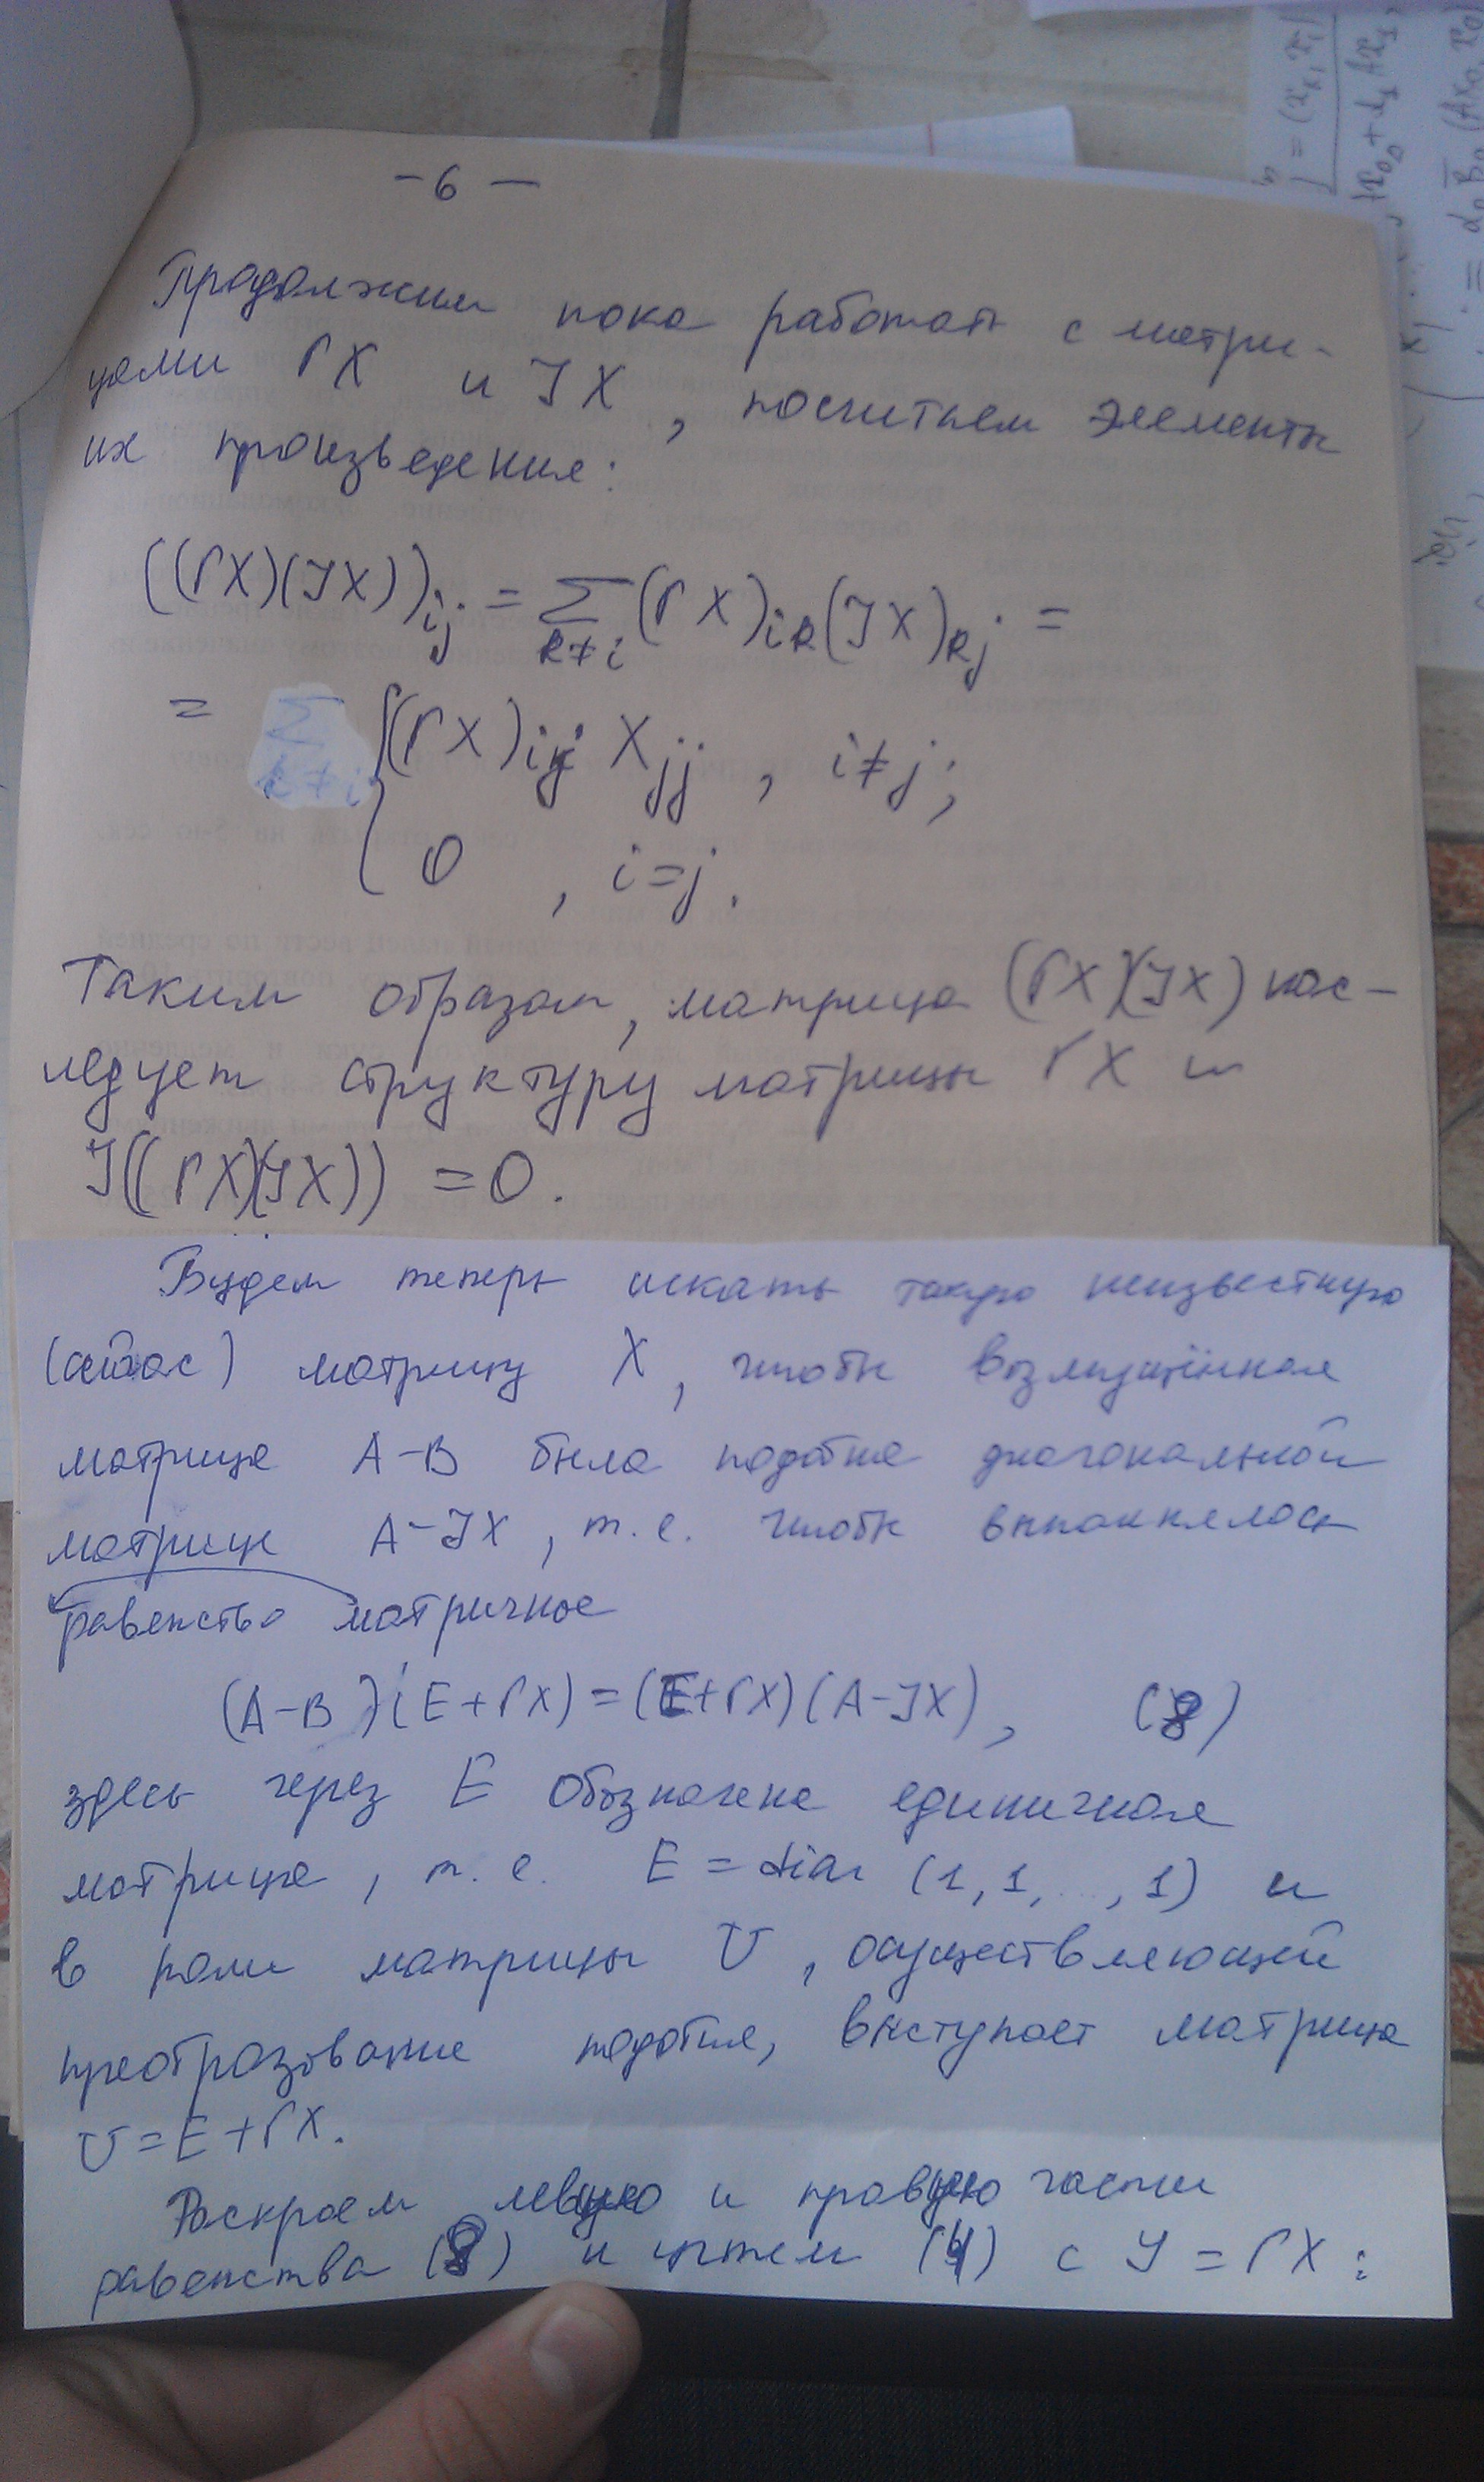 -6-
Продолжим пока работать с матри-
цами ГХ и JX, посчитаем элементы
их произведения:
((ГХ)(JX))ij = Σk≠i (ГХ)ik(JX)kj =
= Σk≠i { (ГХ)ij Xjj , i≠j;
0 , i=j.
Таким образом, матрица (ГХ)(JX) нас-
ледует структуру матрицы ГХ и
J((ГХ)(JX)) = 0.
Будем теперь искать такую неизвестную
матрицу X, чтобы возмущённая
матрица A-B была подобна диагональной
матрице A-JX, т.е. чтобы выполнялось
равенство матричное
(A-B)(E+ГХ)=(E+ГХ)(A-JX), (8)
здесь через E обозначена единичная
матрица, т.е. E = diag (1,1,...,1) и
в роли матрицы U, осуществляющей
преобразование подобия, выступает матрица
U=E+ГХ.
Раскроем левую и правую части
равенства (8) и учтем (4) с Y=ГХ: